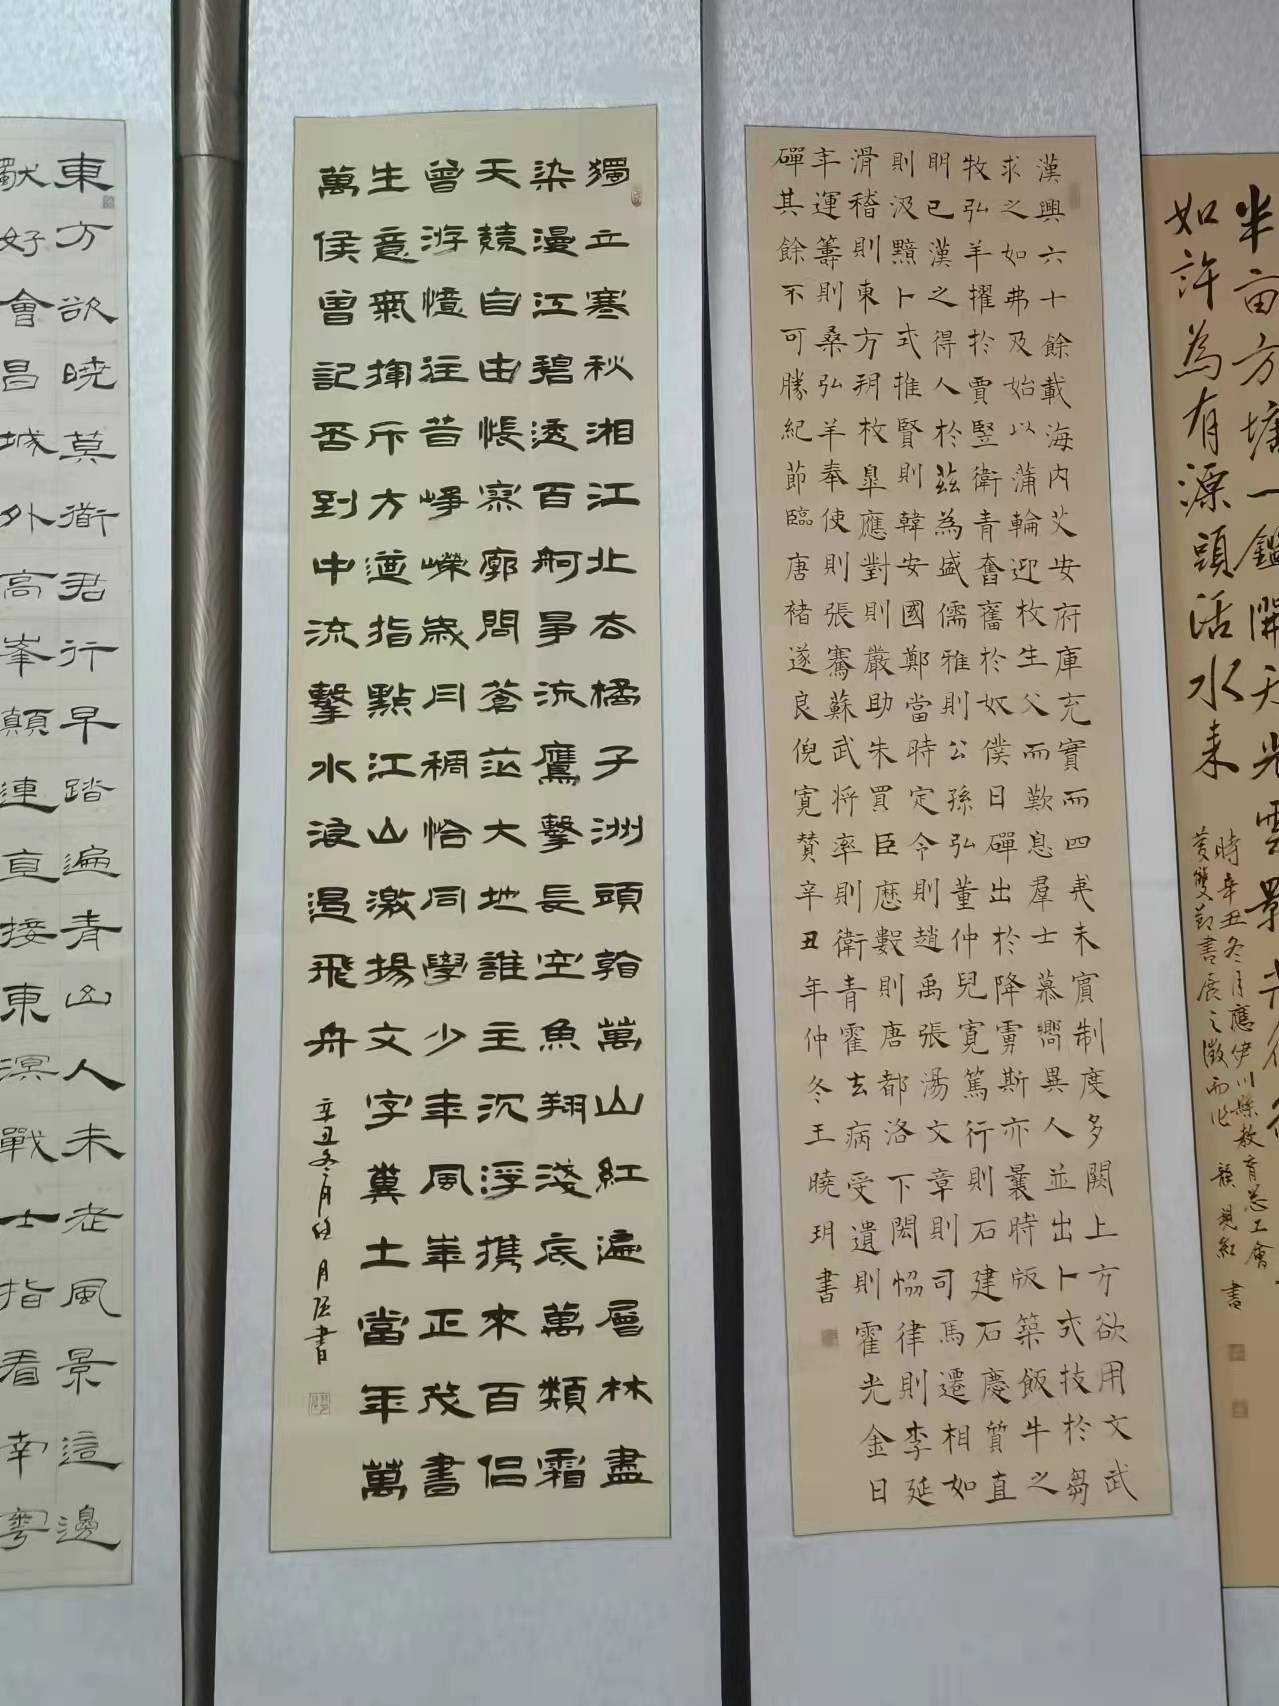 半亩方塘一鑑開天光雲影共
如許為有源頭活水来
時辛丑冬月應伊川縣教育总工會
雙勤書展之徵而作 書
漢興六十餘載海内艾安府庫充實而四夷未賓制度多闕上方欲用文武
求之如弗及始以蒲輪迎枚生父而歎息羣士慕嚮異人並出卜式技於芻
牧弘羊擢於賈豎衛青奮舊於奴僕日磾出於降虜斯亦曩時版築飯牛之
明已漢之得人於茲為盛儒雅則公孫弘董仲兒寬篤行則石建石慶質直
則汲黯卜式推賢則韓安國鄭當時定令則趙禹張湯文章則司馬遷相如
滑稽則東方朔枚臯應對則嚴助朱買臣歷數則唐都洛下閎恊律則李延
年運籌則桑弘羊奉使則張騫蘇武将率則衛青霍去病受遺則霍光金日
磾其餘不可勝紀節臨唐褚遂良倪寬贊辛丑年仲冬王曉玥書
獨立寒秋湘江北去橘子洲頭翰萬山紅遍層林盡
染漫江碧透百舸爭流鷹擊長空魚翔淺底萬類霜
天競自由悵寥廓問蒼茫大地誰主沉浮携來百侣
曾游憶往昔崢嶸歲月稠恰同學少年風華正茂書
生意氣揮斥方遒指點江山激揚文字糞土當年萬
萬侯曾記否到中流擊水浪遏飛舟
辛丑冬月任月書
東方欲曉莫道君行早踏遍青山人未老風景這邊
獻好會昌城外高峯顛連直接東溟戰士指看南粤